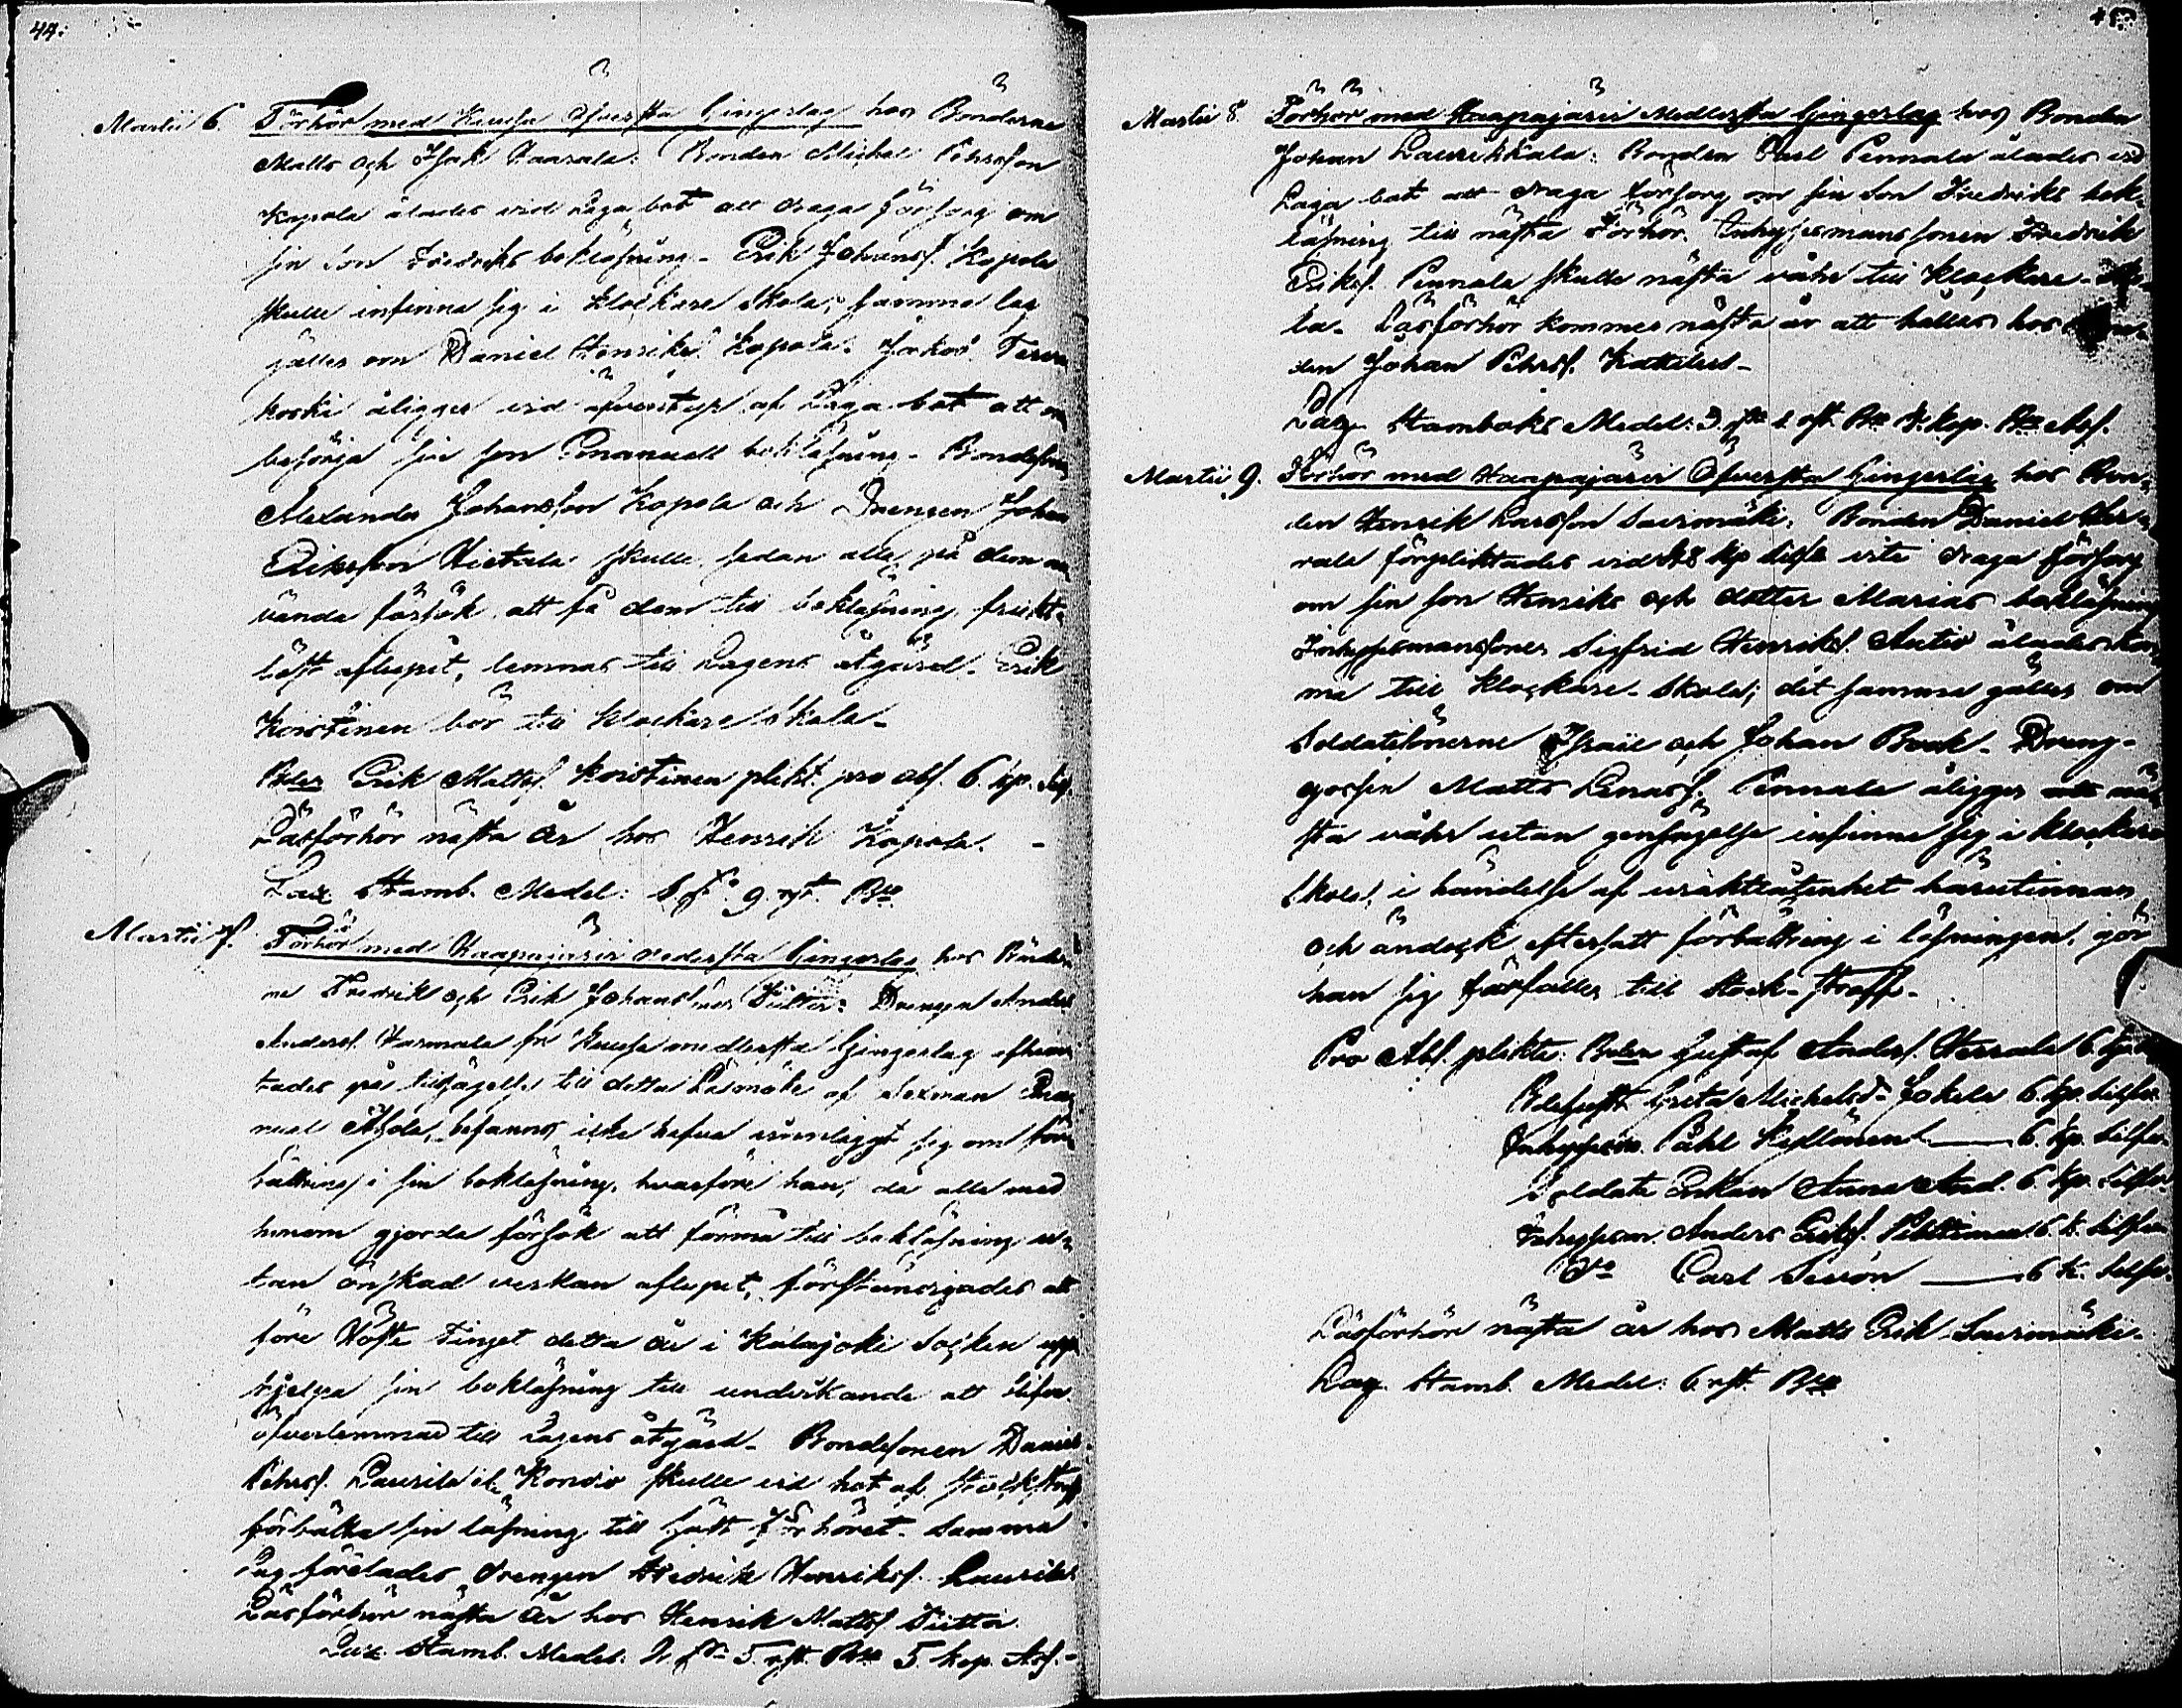 44.
Martii 6. Förhör med Kuusa Öfversta Gingerlag hos Bönderne
Matts och Isak Haarala: Bonden Michel Pehrsson
Kapola ålades vid Laga bot att draga försorg om
sin Son Fredriks bokläsning. Erik Johanss. Kapola
skulle infinna sig i Klockare Skola; samma lag
gäller om Daniel Henrikss. Kapola. Jakob Terva
koski åligger vid äfventyr af Laga bot att
besörja sin son Emanuels bokläsning. Bondeson
Alexander Johansson Kapola och Drengen Johan
Eriksson Hietala skulle, sedan alla på dem an
vända försök att få dem till bokläsning frukt-
löst aflupit, lemnas till Lagens åtgärd. Erik
Koistinen bör till Klockare Skola.
Bden Erik Mattss. Koistinen plikt. pro abs. 6. kp. Silf.
Läsförhör nästa År hos Henrik Kapola.
Lax Stamb. Medel: 9. rst. Bco
Martii 7. Förhör med Haapajärvi nedersta Gingerlag hos Bönder
ne Fredrik och Erik Johanssöner Tiitto: Drengen Anders
Anderss. Harmala fr. Kuusa medlersta Gingerlag efhem
tades på tillsägelse till detta Läsmöte af Sexman Ema
nuel Ahola, befanns icke hafva vinnlagt sig om för
bättring i sin bokläsning, hvarföre han, då alla med
honom gjorda försök att förmå till bokläsning u-
tan önskad verkan aflupit, förständigades att
före Höste Tinget detta år i Kalajoki Socken upp
hjelpa sin bokläsning till undvikande att blifva
öfverlemnad till Lagens åtgärd. Bondesonen Daniel
Pehrss. Laurila el. Kondio skulle vid hot af stockstraff
förbättra sin läsning till Höst Förhöret. Samma
Lag förelades drengen Fredrik Henrikss. Laurila
Läsförhör nästa År hos Henrik Mattss. Tiitto.
Lax. Stamb. Medel. 2 5 rst. Bco 5. kop. Ass.
45
Martii 8. Förhör med Haapajärvi Medlersta Gingerlag hos Bonden
Johan Laurikkala: Bonden Carl Pennala ålades vid
Laga bot att draga försorg om sin Son Fredriks bok-
läsning till nästa Förhör. Inhysesmanssonen Fredrik
Erikss. Pennala skulle nästa vår till Klockare-Sko-
la. Läsförhör kommer nästa år att hållas hos Bon-
den Johan Pehrss. Kattilus.
Lax Stamboks Medel: 3 1 rst. Bco kop. Ass.
Martii 9. Förhör med Haapajärvi Öfversta Gingerlag hos Bon-
den Henrik Larsson Savimäki: Bonden Daniel Her-
rala förpliktades vid 48 kp Silfr vite draga försorg
om sin son Henriks och dotter Marias bokläsning
Inhysesmanssonen Sigfrid Henrikss. Autio ålades kom
ma till Klockare-Skola; det samma gäller om
Soldatsönerne Israel och Johan Book. Dreng-
gossen Matts Enarss. Pennala åligger att nä
sta vår utan gensägelse infinna sig i Klockare
Skola; i händelse af uraktlåtenhet härutinnan
och ändock eftersatt förbättring i läsningen, gör
han sig förfallen till Stock-straff.
Pro Abs. plikta: Bden Gustaf Anderss. Herrala 6. kp. S
Bdehustr. Greta Michelsd. Jokela 6. kp. Silfer
Inhysesm. Påhl Kyllönen — 6 kp. Silfer
Soldats Enkan Anna And. 6 kp. Silfer
Inhysesm. Anders Erikss. Pelttinen 6. k. Silfer
Do Carl Sirén — 6 k. Silfer
Läsförhör nästa år hos Matts Erik Savimäki.
Lax. Stamb. Medel: 6 rst. Bco